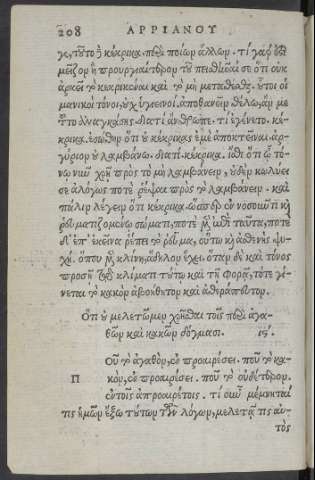 208 ΑΡΡΙΑΝΟΥ
γε, τοῦτο ἢ κέκρικα. περὶ ποίων ἄλλων. τί γὰρ
μεῖζον ἢ προυργιαίτερον τοῦ πεισθῆναί σε ὅτι οὐκ
ἀρκεῖ τὸ κεκρικέναι καὶ τὸ μὴ μεταθέσθαι. οὗτοι οἱ
μανικοὶ τόνοι, οὐχ ὑγιεινοί. ἀποθανεῖν θέλω, ἄν με
τοῦτο ἀναγκάσῃς. διατί ἄνθρωπε. τί ἐγένετο. κέ-
κρικα. ἐσώθην ὅτι οὐ κέκρικας ἐμὲ ἀποκτεῖναι. ἀρ-
γύριον οὐ λαμβάνω. διατί. κέκρικα. ἴσθι ὅτι ᾧ τό-
νῳ νῦν χρῇ πρὸς τὸ μὴ λαμβάνειν, οὐδὲν κωλύει
σε ἀλόγως ποτὲ ῥέψαι πρὸς τὸ λαμβάνειν. καὶ
πάλιν λέγειν ὅτι κέκρικα. ὥσπερ ἐν νοσοῦντι καὶ
ῥευματιζομένῳ σώματι, ποτὲ μὲν ἐπὶ ταῦτα, ποτὲ
δ' ἐπ' ἐκεῖνα ῥέπει τὸ ῥεῦμα, οὕτω καὶ ἀσθενὴς ψυ-
χὴ. ὅπου μὲν κλίνῃ, ἄδηλον ἔχει. ὅταν δὲ καὶ τόνος
προσῇ τῷ κλίματι τούτῳ καὶ τῇ φορᾷ, τότε γί-
νεται τὸ κακὸν ἀβοήθητον καὶ ἀθεράπευτον.
Ὅτι οὐ μελετῶμεν χρῆσθαι τοῖς περὶ ἀγα-
θῶν καὶ κακῶν δόγμασι. ις.
Ποῦ τὸ ἀγαθόν, ἐν προαιρέσει. ποῦ τὸ κα-
κόν, ἐν προαιρέσει. ποῦ τὸ οὐδέτερον.
ἐν τοῖς ἀπροαιρέτοις. τί οὖν μέμνηταί
τις ἡμῶν ἔξω τούτων τῶν λόγων, μελετᾷ τις αὐ-
τὸς